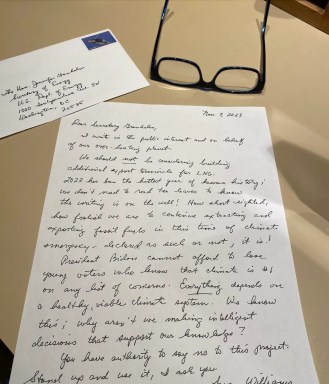 The Hon. Jennifer Granholm
Secretary of Energy
U.S. Dept. of Energy
1000 Independence Ave. SW
Washington, D.C.
20585
Nov. 2023
Dear Secretary Granholm,
I write in the public interest and on behalf
of our over-heating planet.
We should not be considering building
additional export terminals for LNG.
2023 has been the hottest year of human history;
we don't need to read tea leaves to know
the writing is on the wall! How short-sighted,
how foolish we are to continue extracting and
exporting fossil fuels in this time of climate
emergency - declared as such or not, it is!
President Biden cannot afford to lose
young voters who know that climate is #1
on any list of concerns. Everything depends on
a healthy, viable climate system. We know
this; why aren't we making intelligent
decisions that support our knowledge?
You have authority to say no to this project.
Stand up and use it, I ask you.
Williams